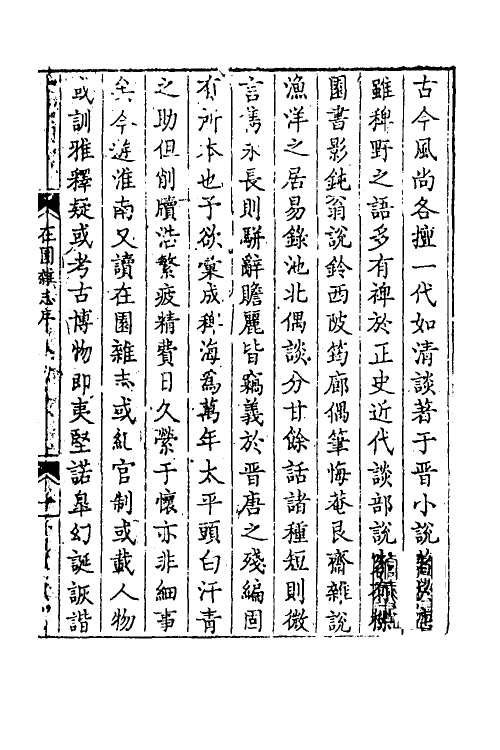 古今風尚各擅一代如清談著于晉小說著於唐
雖稗野之語多有裨於正史近代談部說
園書影鈍翁說鈴西陂筠廊偶筆悔菴艮齋雜說
漁洋之居易錄池北偶談分甘餘話諸種短則微
言雋永長則駢辭贍麗皆竊義於晉唐之殘編固
有所本也予欲彙成稗海為萬年太平頭白汗青
之助但削牘浩繁疲精費日久縈于懷亦非細事
矣今遊淮南又讀在園雜志或糺官制或載人物
或訓雅釋疑或考古博物即夷堅諾皐幻誕詼諧
在園雜志序